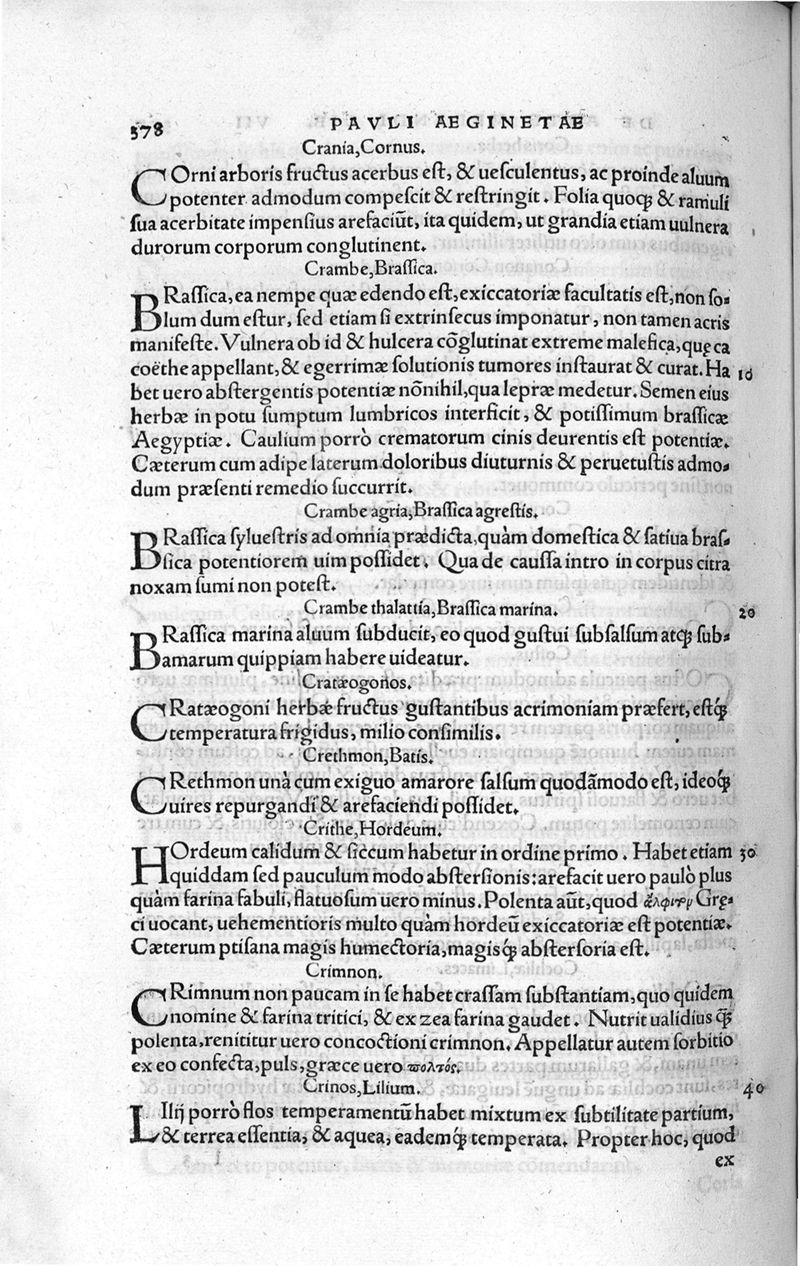 378 PAVLI AEGINETAE
Crania, Cornus.
COrni arboris fructus acerbus est, & uesculentus, ac proinde aluum
potenter admodum compescit & restringit. Folia quoq; & ramuli
sua acerbitate impensius arefaciūt, ita quidem, ut grandia etiam uulnera
durorum corporum conglutinent.
Crambe, Brassica.
BRassica, ea nempe quæ edendo est, exiccatoriæ facultatis est, non so-
lum dum estur, sed etiam si extrinsecus imponatur, non tamen acris
manifeste. Vulnera ob id & hulcera cōglutinat extreme malefica, quę ca
coëthe appellant, & egerrimæ solutionis tumores instaurat & curat. Ha 10
bet uero abstergentis potentiæ nōnihil, qua lepræ medetur. Semen eius
herbæ in potu sumptum lumbricos interficit, & potissimum brassicæ
Aegyptiæ. Caulium porrò crematorum cinis deurentis est potentiæ.
Cæterum cum adipe laterum doloribus diuturnis & peruetustis admo-
dum præsenti remedio succurrit.
Crambe agria, Brassica agrestis.
BRassica syluestris ad omnia prædicta, quàm domestica & satiua bras-
sica potentiorem uim possidet. Qua de caussa intro in corpus citra
noxam sumi non potest.
Crambe thalattia, Brassica marina. 20
BRassica marina aluum subducit, eo quod gustui subsalsum atq; sub-
amarum quippiam habere uideatur.
Cratæogonos.
CRatæogoni herbæ fructus gustantibus acrimoniam præfert, estq;
temperatura frigidus, milio consimilis.
Crethmon, Batis.
CRethmon unà cum exiguo amarore salsum quodāmodo est, ideoq;
uires repurgandi & arefaciendi possidet.
Crithe, Hordeum.
HOrdeum calidum & siccum habetur in ordine primo. Habet etiam 30
quiddam sed pauculum modo abstersionis: arefacit uero paulò plus
quàm farina fabuli, flatuosum uero minus. Polenta aūt, quod ἄλφιτον Grę-
ci uocant, uehementioris multo quàm hordeū exiccatoriæ est potentiæ.
Cæterum ptisana magis humectoria, magisq; abstersoria est.
Crimnon.
CRimnum non paucam in se habet crassam substantiam, quo quidem
nomine & farina tritici, & ex zea farina gaudet. Nutrit ualidius q̃
polenta, renititur uero concoctioni crimnon. Appellatur autem sorbitio
ex eo confecta, puls, græce uero πολτός.
Crinos, Lilium. 40
LIlij porrò flos temperamentū habet mixtum ex subtilitate partium,
& terrea essentia, & aquea, eademq; temperata. Propter hoc, quod
ex